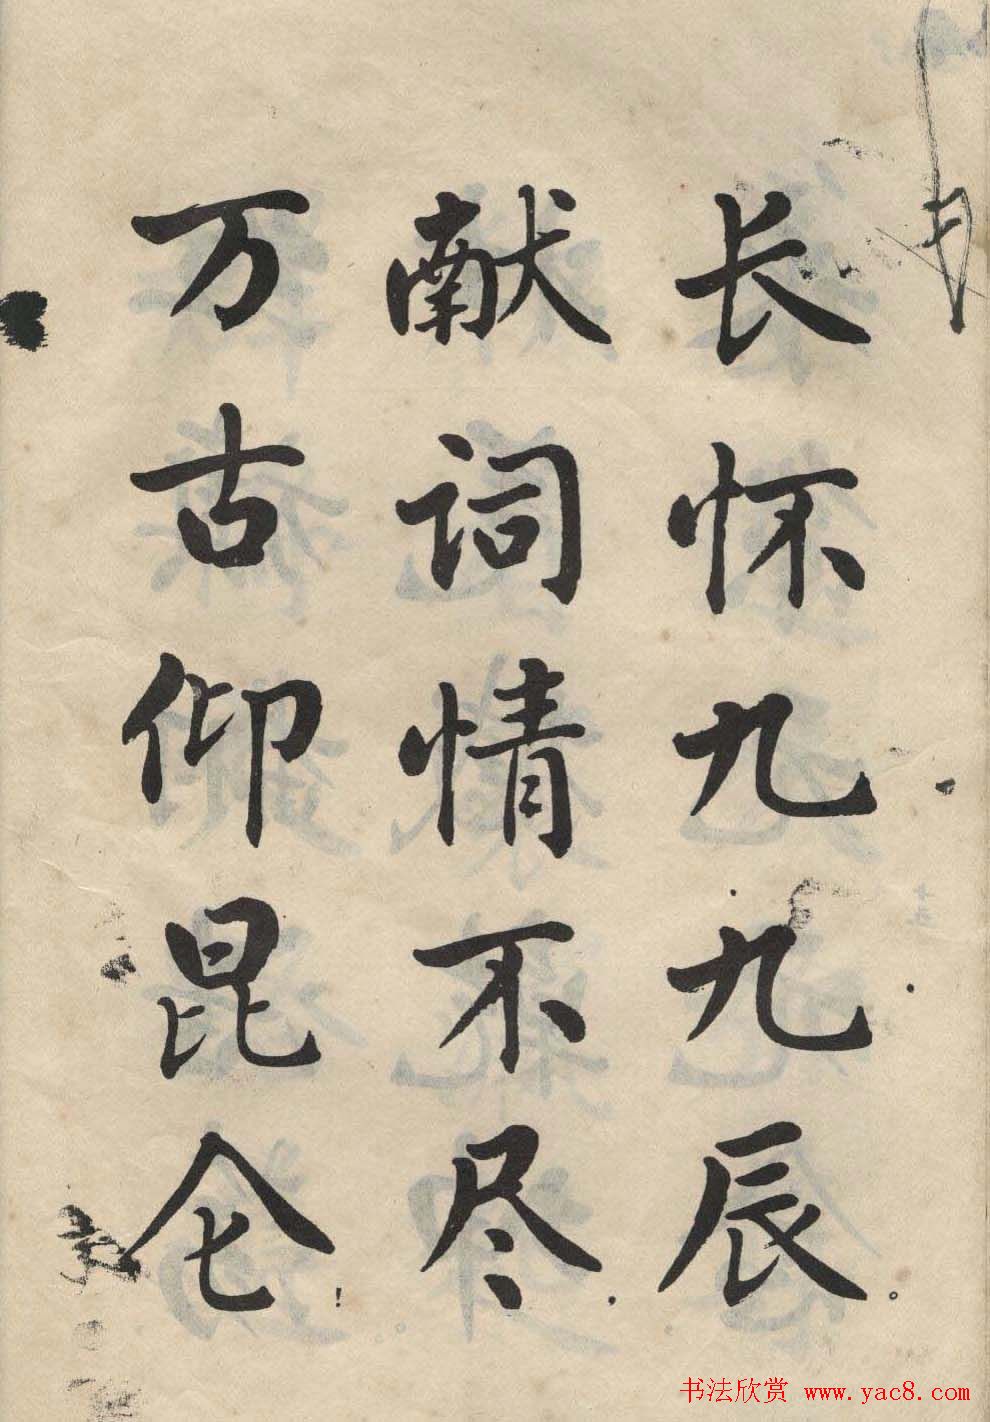 长怀九九辰。
献词情不尽.
万古仰昆仑!
书法欣赏 www.yac8.com